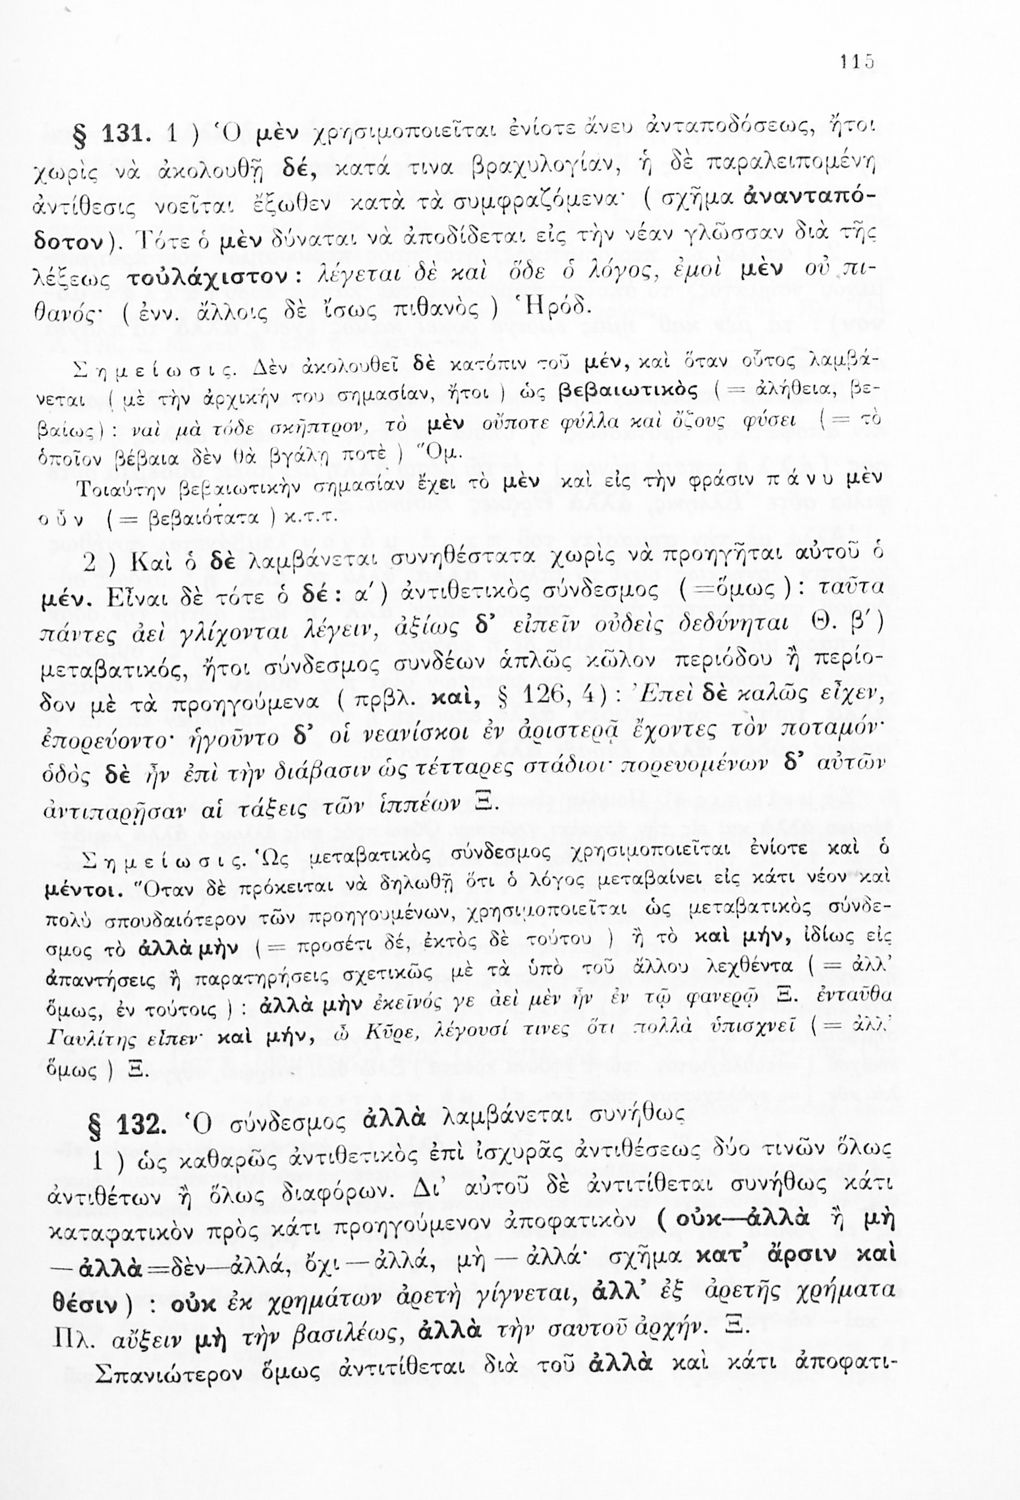 115
§ 131. 1 ) Ὁ μὲν χρησιμοποιεῖται ἐνίοτε ἄνευ ἀνταποδόσεως, ἤτοι
χωρὶς νὰ ἀκολουθῇ δέ, κατά τινα βραχυλογίαν, ἡ δὲ παραλειπομένη
ἀντίθεσις νοεῖται ἔξωθεν κατὰ τὰ συμφραζόμενα· ( σχῆμα ἀνανταπό-
δοτον). Τότε ὁ μὲν δύναται νὰ ἀποδίδεται εἰς τὴν νέαν γλῶσσαν διὰ τῆς
λέξεως τοὐλάχιστον : λέγεται δὲ καὶ ὅδε ὁ λόγος, ἐμοὶ μὲν οὐ πι-
θανός· ( ἐνν. ἄλλοις δὲ ἴσως πιθανὸς ) Ἡρόδ.
Σημείωσις. Δὲν ἀκολουθεῖ δὲ κατόπιν τοῦ μέν, καὶ ὅταν οὗτος λαμβά-
νεται ( μὲ τὴν ἀρχικήν του σημασίαν, ἤτοι ) ὡς βεβαιωτικὸς ( = ἀλήθεια, βε-
βαίως) : ναὶ μὰ τόδε σκῆπτρον, τὸ μὲν οὔποτε φύλλα καὶ ὄζους φύσει ( = τὸ
ὁποῖον βέβαια δὲν θὰ βγάλῃ ποτὲ ) Ὅμ.
Τοιαύτην βεβαιωτικὴν σημασίαν ἔχει τὸ μὲν καὶ εἰς τὴν φράσιν πάνυ μὲν
οὖν ( = βεβαιότατα ) κ.τ.τ.
2 ) Καὶ ὁ δὲ λαμβάνεται συνηθέστατα χωρὶς νὰ προηγῆται αὐτοῦ ὁ
μέν. Εἶναι δὲ τότε ὁ δέ : α΄) ἀντιθετικὸς σύνδεσμος ( =ὅμως ) : ταῦτα
πάντες ἀεὶ γλίχονται λέγειν, ἀξίως δ’ εἰπεῖν οὐδεὶς δεδύνηται Θ. β΄)
μεταβατικός, ἤτοι σύνδεσμος συνδέων ἁπλῶς κῶλον περιόδου ἢ περίο-
δον μὲ τὰ προηγούμενα ( πρβλ. καὶ, § 126, 4) : Ἐπεὶ δὲ καλῶς εἶχεν,
ἐπορεύοντο· ἡγοῦντο δ’ οἱ νεανίσκοι ἐν ἀριστερᾷ ἔχοντες τὸν ποταμόν·
ὁδὸς δὲ ἦν ἐπὶ τὴν διάβασιν ὡς τέτταρες στάδιοι· πορευομένων δ’ αὐτῶν
ἀντιπαρῇσαν αἱ τάξεις τῶν ἱππέων Ξ.
Σημείωσις. Ὡς μεταβατικὸς σύνδεσμος χρησιμοποιεῖται ἐνίοτε καὶ ὁ
μέντοι. Ὅταν δὲ πρόκειται νὰ δηλωθῇ ὅτι ὁ λόγος μεταβαίνει εἰς κάτι νέον καὶ
πολὺ σπουδαιότερον τῶν προηγουμένων, χρησιμοποιεῖται ὡς μεταβατικὸς σύνδε-
σμος τὸ ἀλλὰ μὴν ( = προσέτι δέ, ἐκτὸς δὲ τούτου ) ἢ τὸ καὶ μήν, ἰδίως εἰς
ἀπαντήσεις ἢ παρατηρήσεις σχετικῶς μὲ τὰ ὑπὸ τοῦ ἄλλου λεχθέντα ( = ἀλλ’
ὅμως, ἐν τούτοις ) : ἀλλὰ μὴν ἐκεῖνός γε ἀεὶ μὲν ἦν ἐν τῷ φανερῷ Ξ. ἐνταῦθα
Γαυλίτης εἶπεν· καὶ μήν, ὦ Κῦρε, λέγουσί τινες ὅτι πολλὰ ὑπισχνεῖ ( = ἀλλ’
ὅμως ) Ξ.
§ 132. Ὁ σύνδεσμος ἀλλὰ λαμβάνεται συνήθως
1 ) ὡς καθαρῶς ἀντιθετικὸς ἐπὶ ἰσχυρᾶς ἀντιθέσεως δύο τινῶν ὅλως
ἀντιθέτων ἢ ὅλως διαφόρων. Δι’ αὐτοῦ δὲ ἀντιτίθεται συνήθως κάτι
καταφατικὸν πρὸς κάτι προηγούμενον ἀποφατικὸν ( οὐκ—ἀλλὰ ἢ μὴ
— ἀλλὰ =δὲν—ἀλλά, ὄχι — ἀλλά, μὴ — ἀλλά· σχῆμα κατ’ ἄρσιν καὶ
θέσιν ) : οὐκ ἐκ χρημάτων ἀρετὴ γίγνεται, ἀλλ’ ἐξ ἀρετῆς χρήματα
Πλ. αὔξειν μὴ τὴν βασιλέως, ἀλλὰ τὴν σαυτοῦ ἀρχήν. Ξ.
Σπανιώτερον ὅμως ἀντιτίθεται διὰ τοῦ ἀλλὰ καὶ κάτι ἀποφατι-